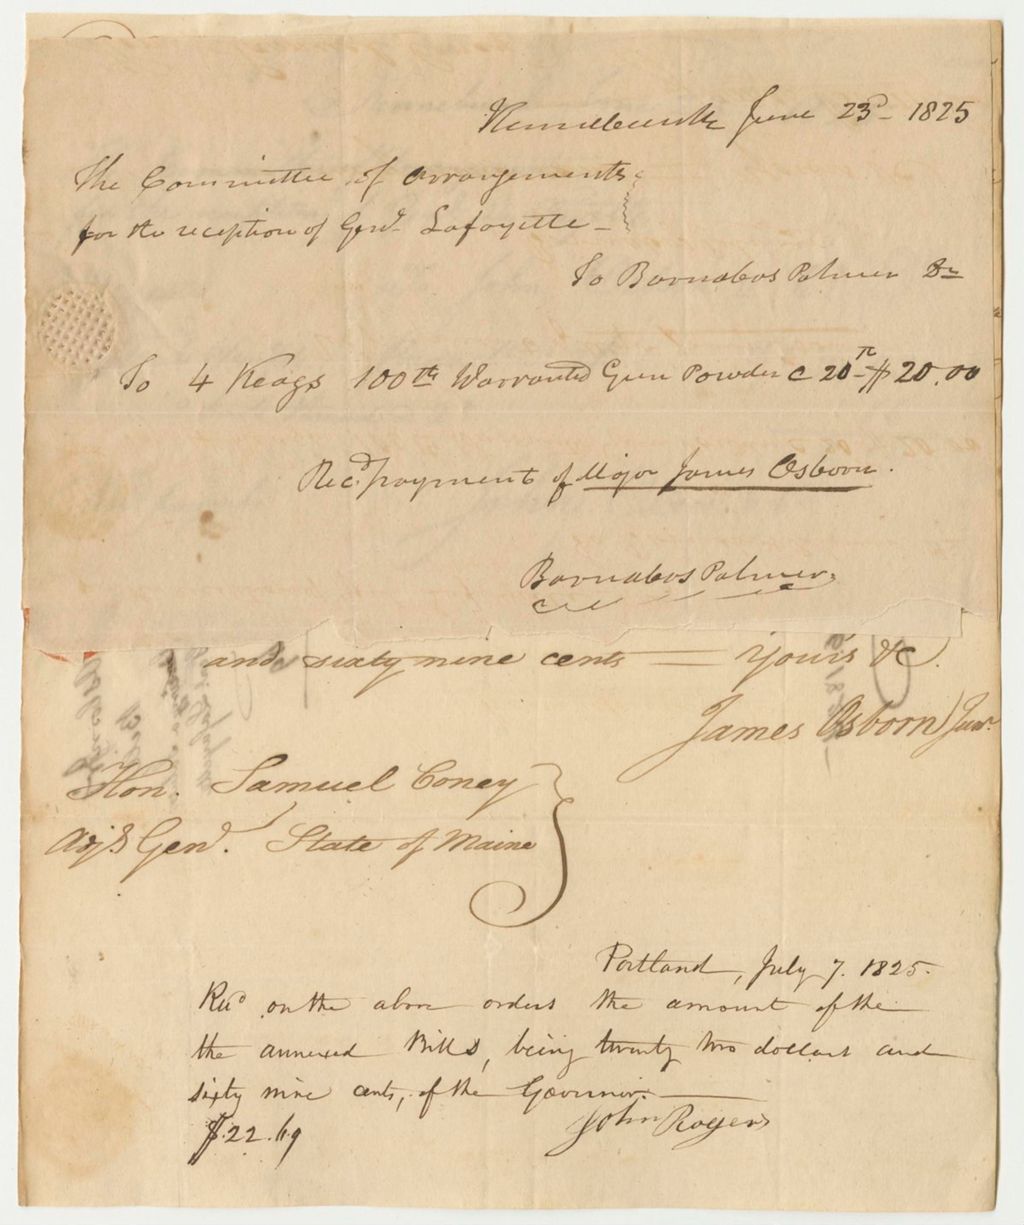 Kennebunk June 23d - 1825
The Committee of Arrangements
for the reception of Genl. Lafayette -
To Barnabas Palmer Dr
To 4 Keags 100 lb Warranted Gun Powder c 20 $20.00
Recd. payment of Major James Osborn.
Barnabas Palmer
and sixty nine cents — Yours &c.
James Osborn Junr.
Hon. Samuel Coney
Adjt Genl. State of Maine
Portland, July 7. 1825.
Recd on the above orders the amount of the
the annexed Bills, being twenty two dollars and
sixty nine cents, of the Governor. —
$.22.69
John Rogers